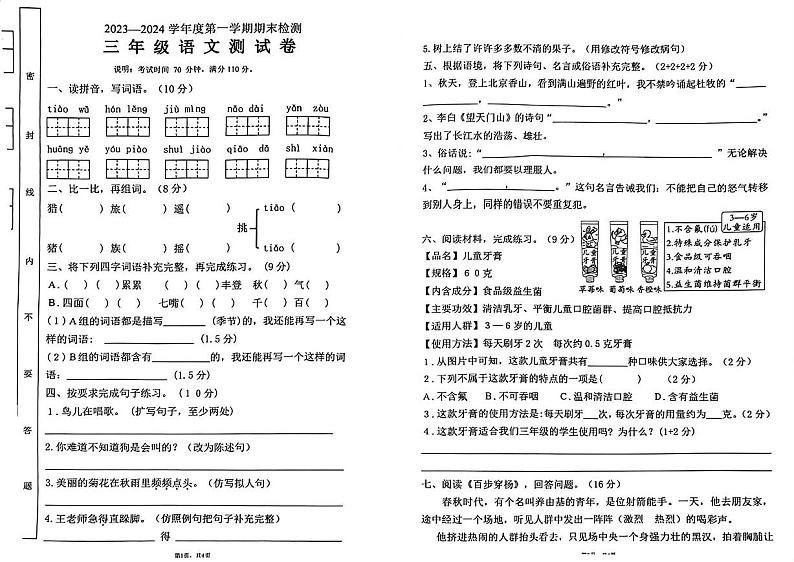 密
封
线
内
不
要
答
题
2023—2024 学年度第一学期期末检测
三 年 级 语 文 测 试 卷
说明：考试时间 70 分钟，满分110分。
一、读拼音，写词语。（10分）
tiǎo wǔ hán lěng jiù mìng nǎo dài yǎn zòu
huāng yě yóu piào shuǐ jiǎo qiāo dǎ shì xiàn
二、比一比，再组词。（8分）
猎（ ）旅（ ）遥（ ） tiāo（ ）
挑
猪（ ）族（ ）摇（ ） tiǎo（ ）
三、将下列四字词语补充完整，再完成练习。（9分）
A.（ ）（ ）累累 （ ）（ ）丰登 秋（ ）气（ ）
B.四面（ ）（ ） 七嘴（ ）（ ） 千（ ）百（ ）
（1）A组的词语都是描写________（季节）的，我还能再写一个这
样的词语：______________（1.5分）
（2）B组的词语都含有________的，我还能再写一个这样的词
语：______________（1.5分）
四、按要求完成句子练习。（10分）
1.鸟儿在唱歌。（扩写句子，至少两处）
2.你难道不知道狗是会叫的？（改为陈述句）
3.美丽的菊花在秋雨里频频点头。（仿写拟人句）
4.王老师急得直跺脚。（仿照例句把句子补充完整）
____________得____________
第1页，共4页
5.树上结了许许多多数不清的果子。（用修改符号修改病句）
五、根据语境，将下列诗句、名言或俗语补充完整。（2+2+2+2分）
1、秋天，登上北京香山，看到满山遍野的红叶，我不禁吟诵起杜牧的“______
__________，______________。”
2、李白《望天门山》的诗句“______________，______________。”
写出了长江水的浩荡、雄壮。
3、俗话说：“______________，______________”无论解决
什么问题，我们都要以理服人。
4、“__________，__________。”这句名言告诫我们：不能把自己的怒气转移
到别人身上，同样的错误不要重复犯。
六、阅读材料，完成练习。（9分）
【品名】儿童牙膏
【规格】60克
【内含成分】食品级益生菌
【主要功效】清洁牙乳、平衡儿童口腔菌群、提高口腔抵抗力
【适用人群】3—6岁的儿童
【使用方法】每天刷牙2次 每次约0.5克牙膏
儿童牙膏
儿童牙膏
儿童牙膏
草莓味 葡萄味 香橙味
3—6岁
儿童适用
1.不含氟(fú)
2.特殊成分保护乳牙
3.食品级可吞咽
4.温和清洁口腔
5.益生菌维持菌群平衡
1.从图片中可知，这款儿童牙膏共有______种口味供大家选择。（2分）
2.下列不属于这款牙膏的特点的一项是（ ） （2分）
A.不含氟 B.不可吞咽 C.温和清洁口腔 D.含有益生菌
3.这款牙膏的使用方法是：每天刷牙___次，每次牙膏的用量约为___克。（2分）
4.这款牙膏适合我们三年级的学生使用吗？为什么？（1+2分）
七、阅读《百步穿杨》，回答问题。（16分）
春秋时代，有个名叫养由基的青年，是位射箭能手。一天，他去朋友家，
途中经过一个场地，听见人群中发出一阵阵（激烈 热烈）的喝彩声。
他挤进热闹的人群抬头看去，只见场中央一个身强力壮的黑汉，拍着胸脯让